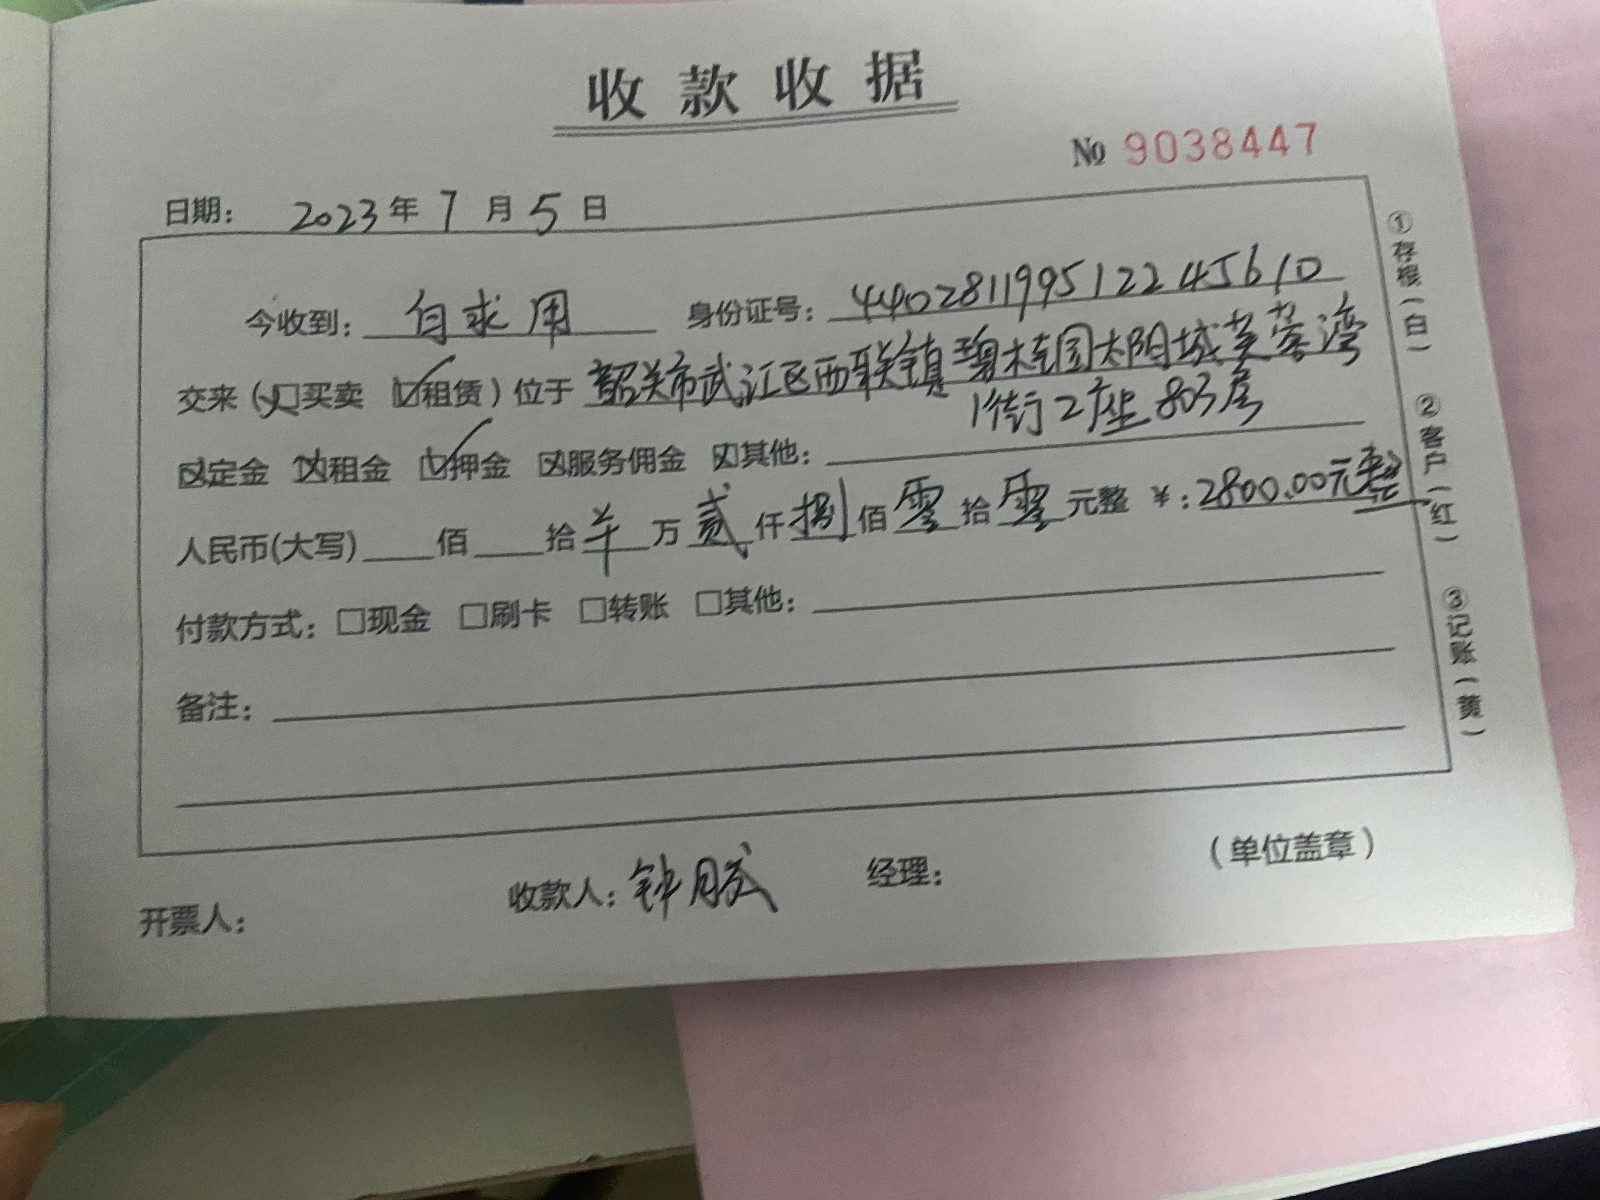 收款收据
№ 9038447
日期： 2023年7月5日
今收到： 白求用 身份证号： 440281199512245610
交来（☒买卖 ☑租赁）位于 韶关市武江区西联镇碧桂园太阳城芙蓉湾
1街2座803房
☒定金 ☒租金 ☑押金 ☒服务佣金 ☒其他：
人民币(大写) 佰 拾 万 贰 仟 捌 佰 零 拾 零 元整 ￥：2800.00元整
付款方式：□现金 □刷卡 □转账 □其他：
备注：
开票人： 收款人：钟 经理： （单位盖章）
①存根（白） ②客户（红） ③记账（黄）